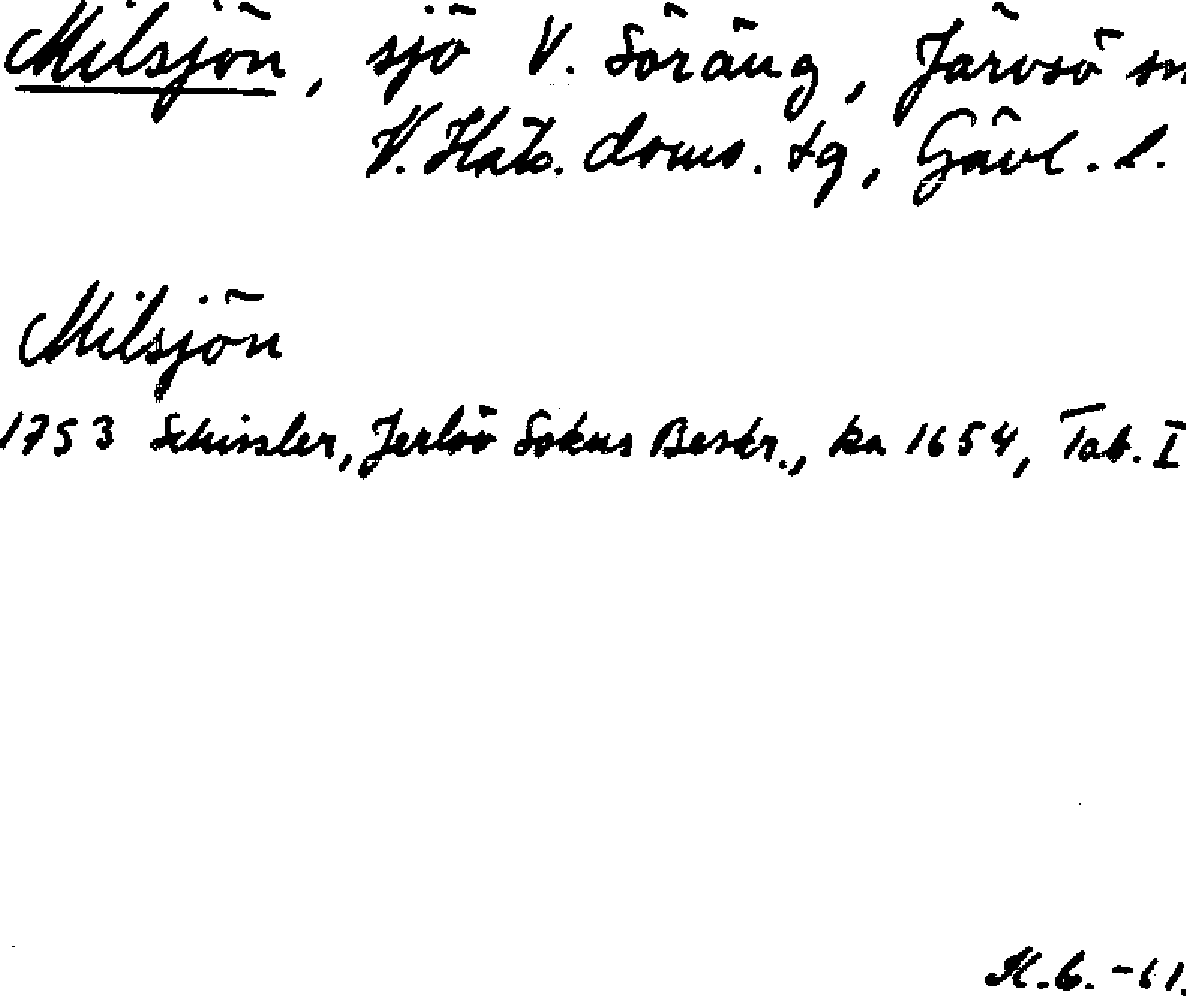 Milsjön, sjö V. Söräng, Järvsö sn
V. Häls. doms. tg, Gävl. l.
Milsjön
1753 Schissler, Jerlsö Sokns Beskr., ka 1654, Tab. I
K.G. -61.